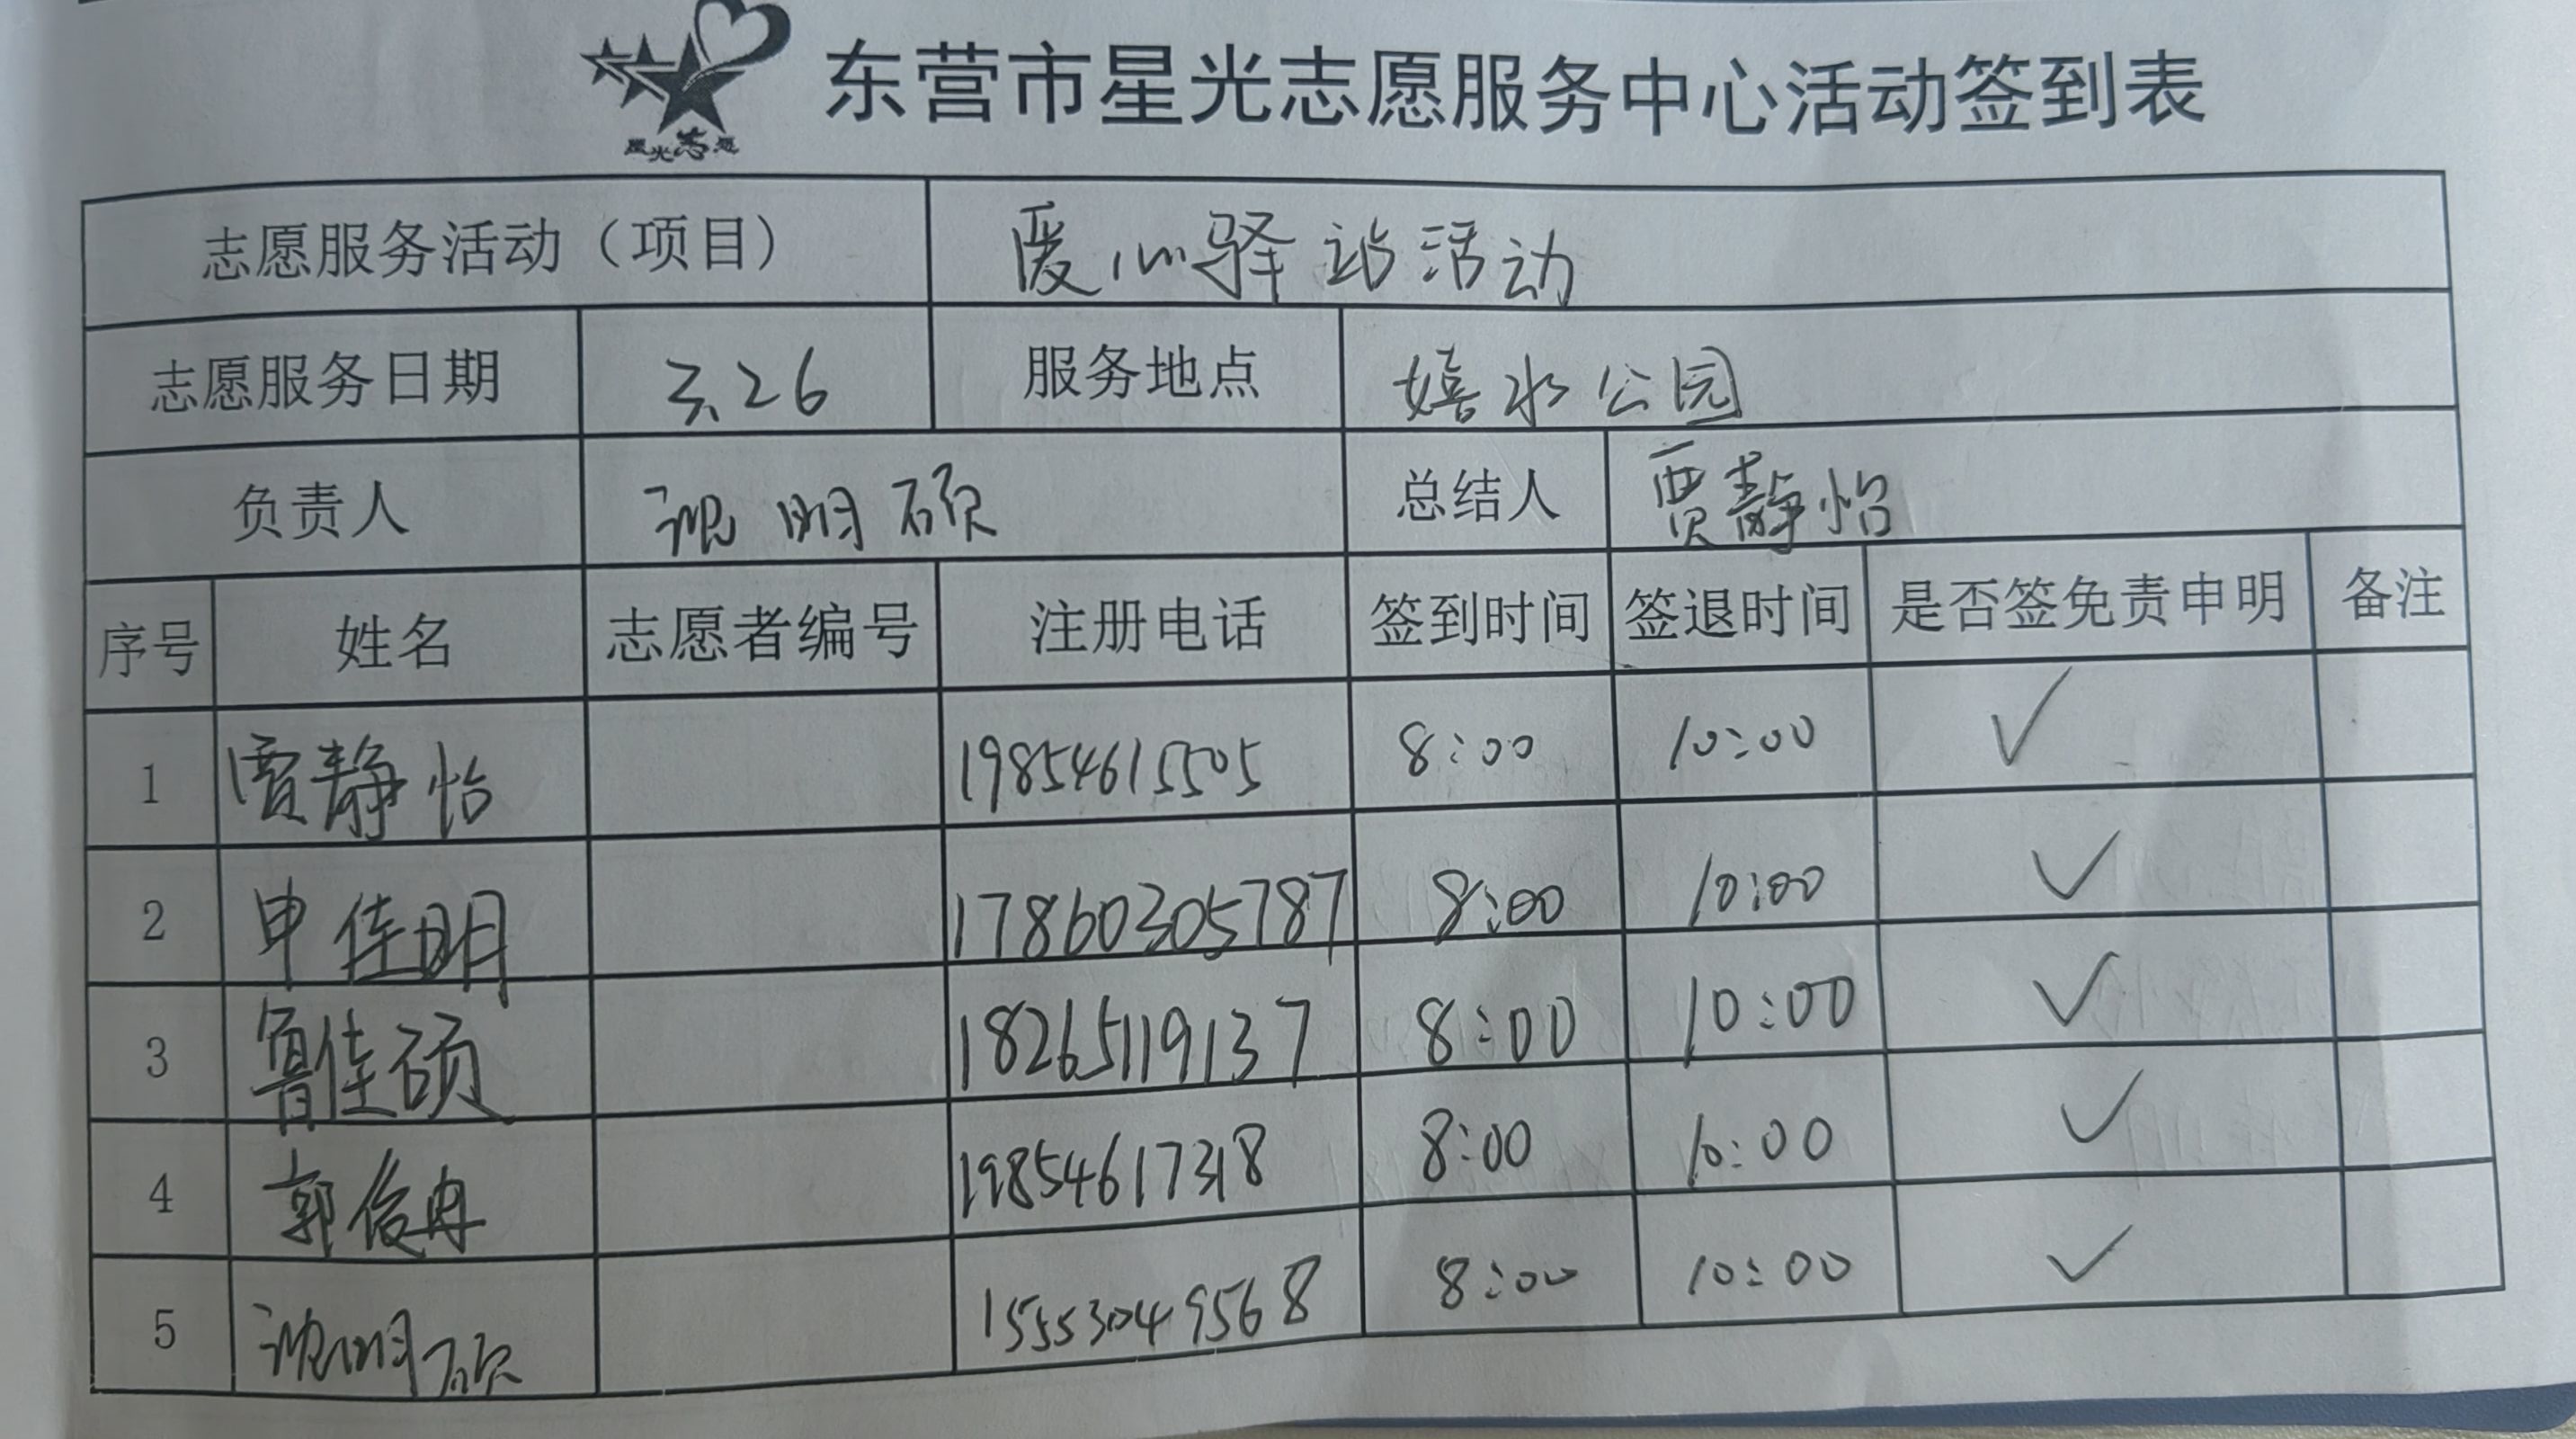 星光志愿
东营市星光志愿服务中心活动签到表
志愿服务活动（项目） 爱心驿站活动
志愿服务日期 3.26 服务地点 嬉水公园
负责人 明硕 总结人 贾静怡
序号 姓名 志愿者编号 注册电话 签到时间 签退时间 是否签免责申明 备注
1 贾静怡 19854615505 8:00 10:00 ✓
2 申佳明 17860305787 8:00 10:00 ✓
3 鲁佳硕 18265119137 8:00 10:00 ✓
4 郭俊冉 19854617318 8:00 10:00 ✓
5 明硕 15553049568 8:00 10:00 ✓